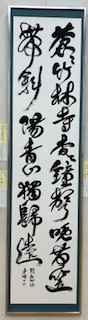 蒼蒼竹林寺杳杳鐘聲晩荷笠
帶斜陽青山獨歸遠